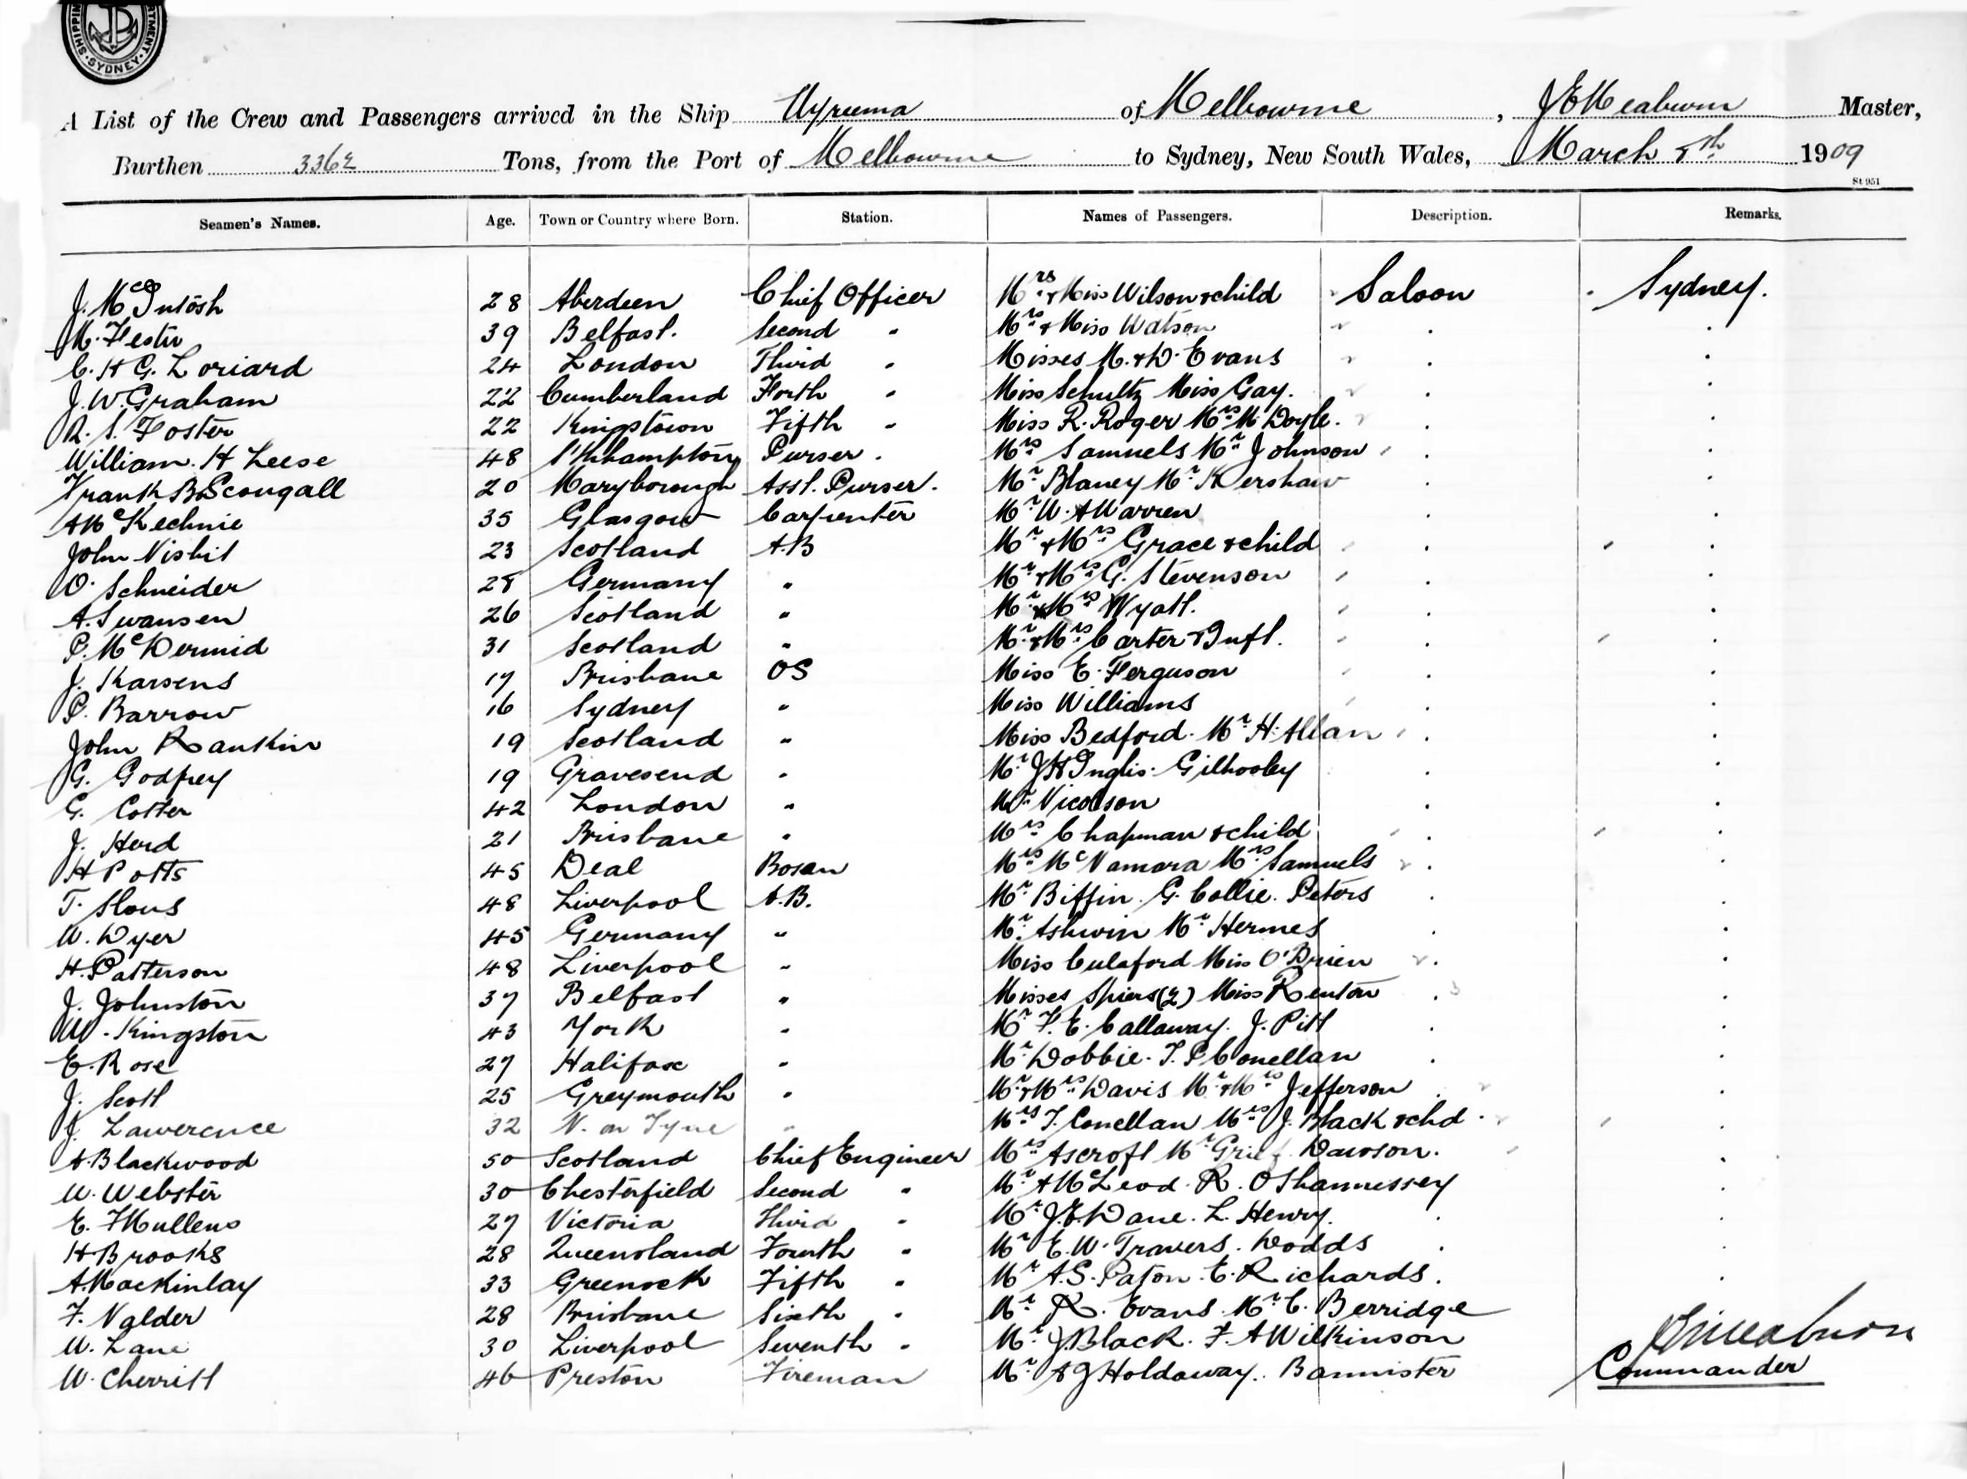 SHIPPING DEPARTMENT SYDNEY
A List of the Crew and Passengers arrived in the Ship Wyreema of Melbourne, J E Meaburn Master,
Burthen 3362 Tons, from the Port of Melbourne to Sydney, New South Wales, March 5th 1909
St 951
Seamen's Names. Age. Town or Country where Born. Station. Names of Passengers. Description. Remarks.
J. McIntosh 28 Aberdeen Chief Officer Mrs & Miss Wilson & child Saloon Sydney.
M. Fester 39 Belfast. Second " Mrs & Miss Watson
C. H G. Loriard 24 London Third " Misses M. & D. Evans
J. W. Graham 22 Cumberland Forth " Miss Schultz Miss Gay.
R. S. Foster 22 Kingstown Fifth " Miss R. Roger Mrs M Doyle.
William. H Leese 48 S'thhampton Purser. Mrs Samuels Mr Johnson
Frank B. Scougall 20 Maryborough Asst. Purser. Mr Blaney Mr Kershaw
A McKechnie 35 Glasgow Carpenter Mr W. A Warren
John Nisbit 23 Scotland A.B Mr & Mrs Grace & child
O. Schneider 28 Germany " Mr & Mrs G. Stevenson
A. Swansen 26 Scotland " Mr & Mrs Wyatt.
P. McDermid 31 Scotland " Mr & Mrs Carter & Inft.
J. Karsens 17 Brisbane OS Miss E. Ferguson
P. Barrow 16 Sydney " Miss Williams
John Rankin 19 Scotland " Miss Bedford. Mr H. Allan
G. Godfrey 19 Gravesend " Mr J H Inglis. Gilhooley
G. Cotter 42 London " Mr Nicolson
J. Herd 21 Brisbane " Mrs Chapman & child
H Potts 45 Deal Bosen Mrs McNamara Mrs Samuels
T. Slous 48 Liverpool A.B. Mr Biffin. G. Collie. Peters
W. Dyer 45 Germany " Mr Ashwin Mr Hermes
H. Patterson 48 Liverpool " Miss Culaford Miss O'Brien
J. Johnston 37 Belfast " Misses Spiers (2) Miss Renton
W. Kingston 43 York " Mr F. E. Callaway. J. Pitt
E. Rose 27 Halifax " Mr Dobbie. T. P Conellan
J. Scott 25 Greymouth " Mr & Mrs Davis Mr & Mrs Jefferson
J. Lawerence 32 N. on Tyne " Mrs T. Conellan Mrs J. Black & chd.
A. Blackwood 50 Scotland Chief Engineer Mrs Ascroft Mr Dawson.
W. Webster 30 Chesterfield Second " Mr A McLeod. R. O Shannessey
E. F Mullens 27 Victoria Third " Mr J. E. Dane. L. Henry.
H Brooks 28 Queensland Fourth " Mr E. W. Travers. Dodds
A. Mackinlay 33 Greenock Fifth " Mr A. S. Paton. E. Richards.
F. Nalder 28 Brisbane Sixth " Mr R. Evans. Mr C. Berridge
W. Lane 30 Liverpool Seventh " Mr J. Black. F. A Wilkinson
W. Cherritt 46 Preston Fireman Mr A J Holdaway. Bannister
J E Meaburn
Commander